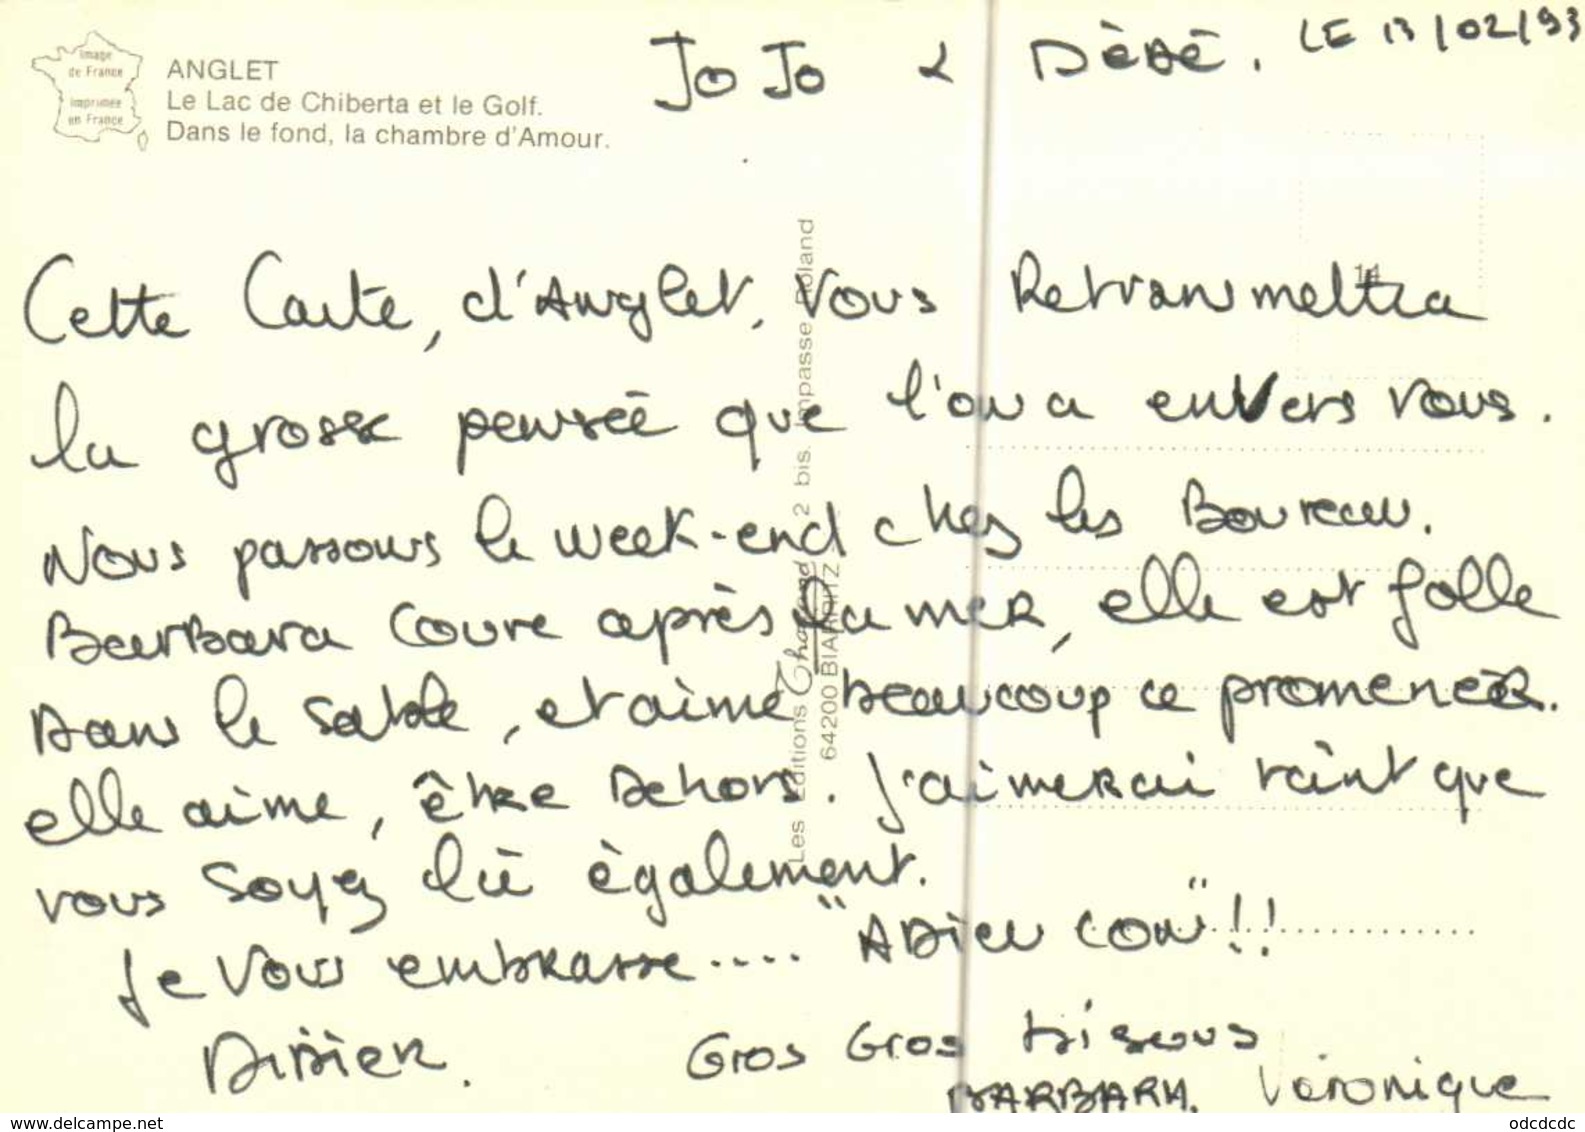 Image
de France
imprimée
en France
ANGLET
Le Lac de Chiberta et le Golf.
Dans le fond, la chambre d'Amour.
JoJo & Dèdé. LE 13/02/93
14
Cette Carte, d'Anglet, vous Retransmettra
la grosse pensée que l'on a envers vous.
Nous passons le week-end chez les Boureau.
Barbara Coure après la mer, elle est folle
Dans le sable, et aime beaucoup ce promener.
elle aime, être Dehors. J'aimerai tant que
vous soyez là également.
Je Vous embrasse.... "ADieu con"!!
DiDier. Gros Gros bisous
BARBARA. Véronique
Les Editions
2 bis. Impasse Roland
64200 BIARRITZ
odcdcdc